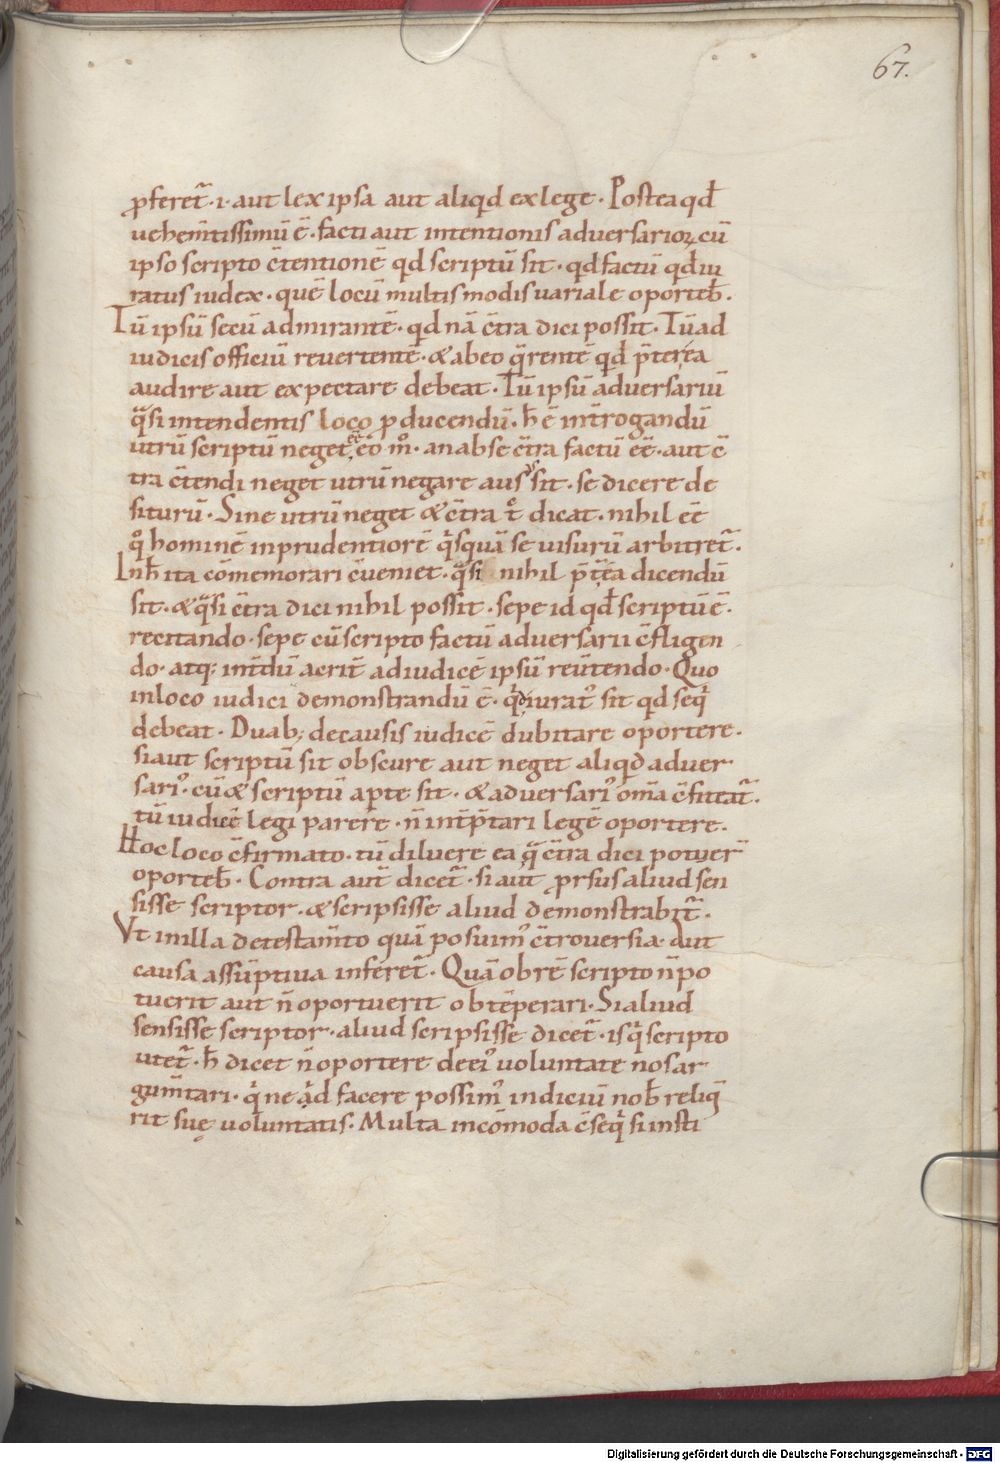 67.
ꝓferet̄ · i · aut lex ipsa aut aliqd ex lege · Postea qđ
uehem̄tissimū ē · facti aut intentionis adversarioꝝ cū
ipso scripto c̄tentionē qd scriptū sit · qd factū qđ iu
ratus iudex · quē locū multis modis uariale oporteb̄ ·
Tū ipsū secū admirantē · qd nā c̄tra dici possit · Tū ad
iudicis officiū revertentē · & ab eo q̄rentē qđ p̄terea
audire aut expectare debeat · Tū ipsū adversariū
q̄si intendentis loco ꝓducendū · h̄ ē int̄rogandū
utrū scriptū neget eē eō mº · an ab se c̄tra factū eē · aut c̄
tra c̄tendi neget utrū negare ausꝰ sit · se dicere de
siturū · Sine utrū neget & c̄tra t̊ dicat · nihil eē
qº hominē inprudentiorē q̇squā se uisurū arbitret̄ ·
In h̄ ita cōmemorari c̄veniet · q̄si nihil p̄t̄ea dicendū
sit · & q̄si c̄tra dici nihil possit · sepe id qđ scriptū ē ·
recitando · sepe cū scripto factū adversarii c̄fligen
do · atq; int̄dū acrit̄ ad iudicē ipsū reūtendo · Quo
in loco iudici demonstrandū ē · q̇d iuratꝰ sit qd seq̇
debeat · Duab; de causis iudicē dubitare oportere ·
si aut scriptū sit obscure aut neget aliqd adver
sariꝰ · cū & scriptū aꝑte sit · & adversariꝰ om̄a c̄fiteat̄ ·
tū iudicē legi parere · n̄ int̄p̄tari legē oportere ·
Hoc loco c̄firmato · tū diluere ea q̄ c̄tra dici potuer̄
oporteb̄ · Contra aut̄ dicet̄ · si aut ꝓrsus aliud sen
sisse scriptor · & scripsisse aliud demonstrabit̄ ·
Ut in illa de testam̄to quā posuimꝰ c̄troversia · aut
causa assūptiva inferet̄ · Quā ob rē scripto n̄ po
tuerit aut n̄ oportuerit obtēperari · Si aliud
sensisse scriptor · aliud scripsisse dicet̄ · is q̇ scripto
utet̄ · h̄ dicet n̄ oportere de eiꝰ voluntate nos ar
gum̄tari · q̇ ne q̇d facere possimꝰ indiciū nob̄ reliq̄
rit suę voluntatis · Multa incōmoda c̄seq̇ si insti
Digitalisierung gefördert durch die Deutsche Forschungsgemeinschaft - DFG